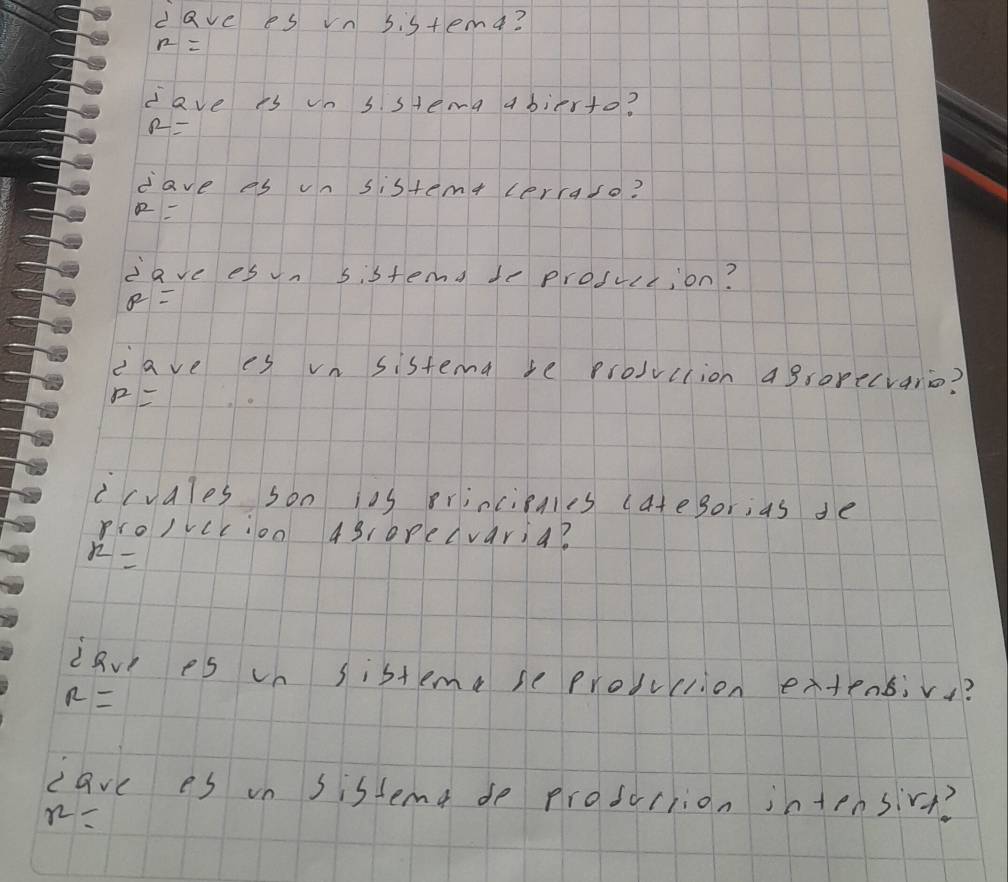 ¿Que es un sistema?
R=
¿Que es un sistema abierto?
R=
¿Que es un sistema cerrado?
R=
¿Que es un sistema de produccion?
R=
¿Que es un sistema de produccion agropecuario?
R=
¿cuales son las principales categorias de
produccion agropecuaria?
R=
¿Que es un sistema de produccion extensiva?
R=
¿Que es un sistema de produccion intensiva?
R=